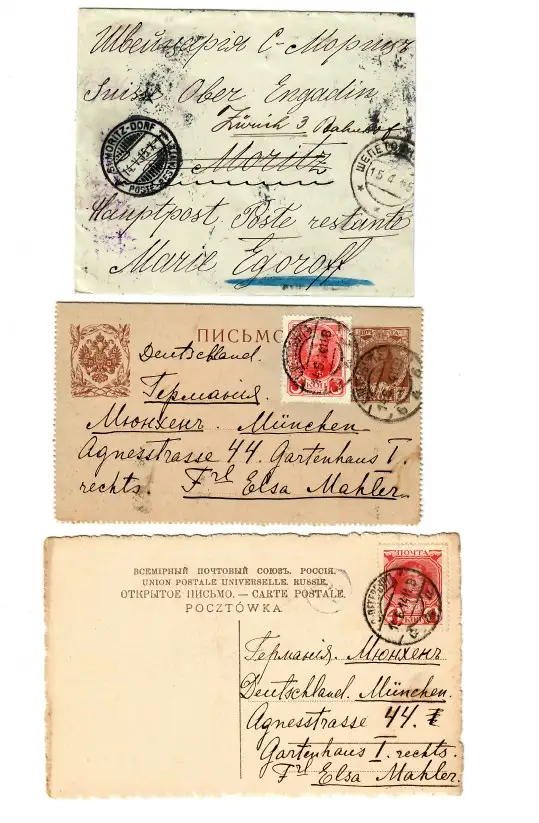 Швейцарія С-Морицъ
Suisse Ober Engadin
Zürich 3 Bahnhof
Moritz
Hauptpost Poste restante
Marie Egoroff
ST. MORITZ-DORF
ШЕПЕТО
15 4
ПИСЬМО
Deutschland.
Германія.
Мюнхенъ. München
Agnesstrasse 44. Gartenhaus I.
rechts. Frl Elsa Mahler.
ВСЕМІРНЫЙ ПОЧТОВЫЙ СОЮЗЪ. РОССІЯ.
UNION POSTALE UNIVERSELLE. RUSSIE.
ОТКРЫТОЕ ПИСЬМО. — CARTE POSTALE.
POCZTÓWKA.
ПОЧТА
Германія. Мюнхенъ
Deutschland. München.
Agnesstrasse 44.
Gartenhaus I. rechts.
Frl Elsa Mahler.